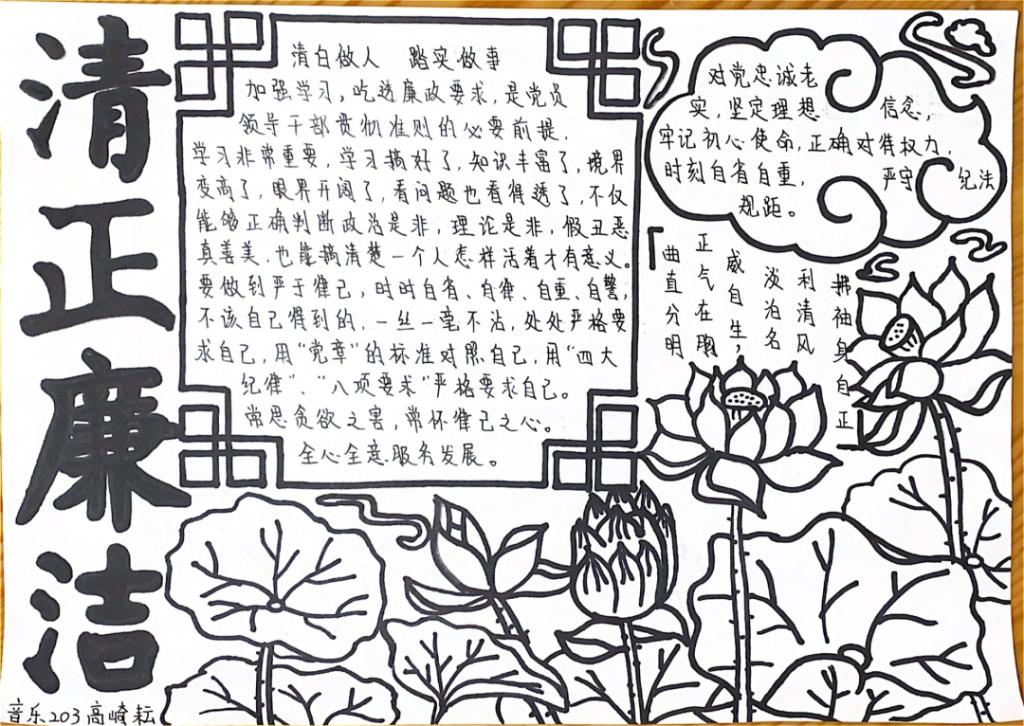 清正廉洁
清白做人 踏实做事
加强学习，吃透廉政要求，是党员
领导干部贯彻准则的必要前提，
学习非常重要，学习搞好了，知识丰富了，境界
变高了，眼界开阔了，看问题也看得透了，不仅
能够正确判断政治是非，理论是非，假丑恶
真善美，也能搞清楚一个人怎样活着才有意义。
要做到严于律己，时时自省、自律、自重、自警，
不该自己得到的，一丝一毫不沾，处处严格要
求自己，用“党章”的标准对照自己，用“四大
纪律”、“八项要求”严格要求自己。
常思贪欲之害，常怀律己之心。
全心全意服务发展。
对党忠诚老
实，坚定理想 信念，
牢记初心使命，正确对待权力，
时刻自省自重， 严守 纪法
规距。
拂袖身自正
利清风
淡泊名
威自生，
正气在胸
曲直分明
音乐203高崎耘